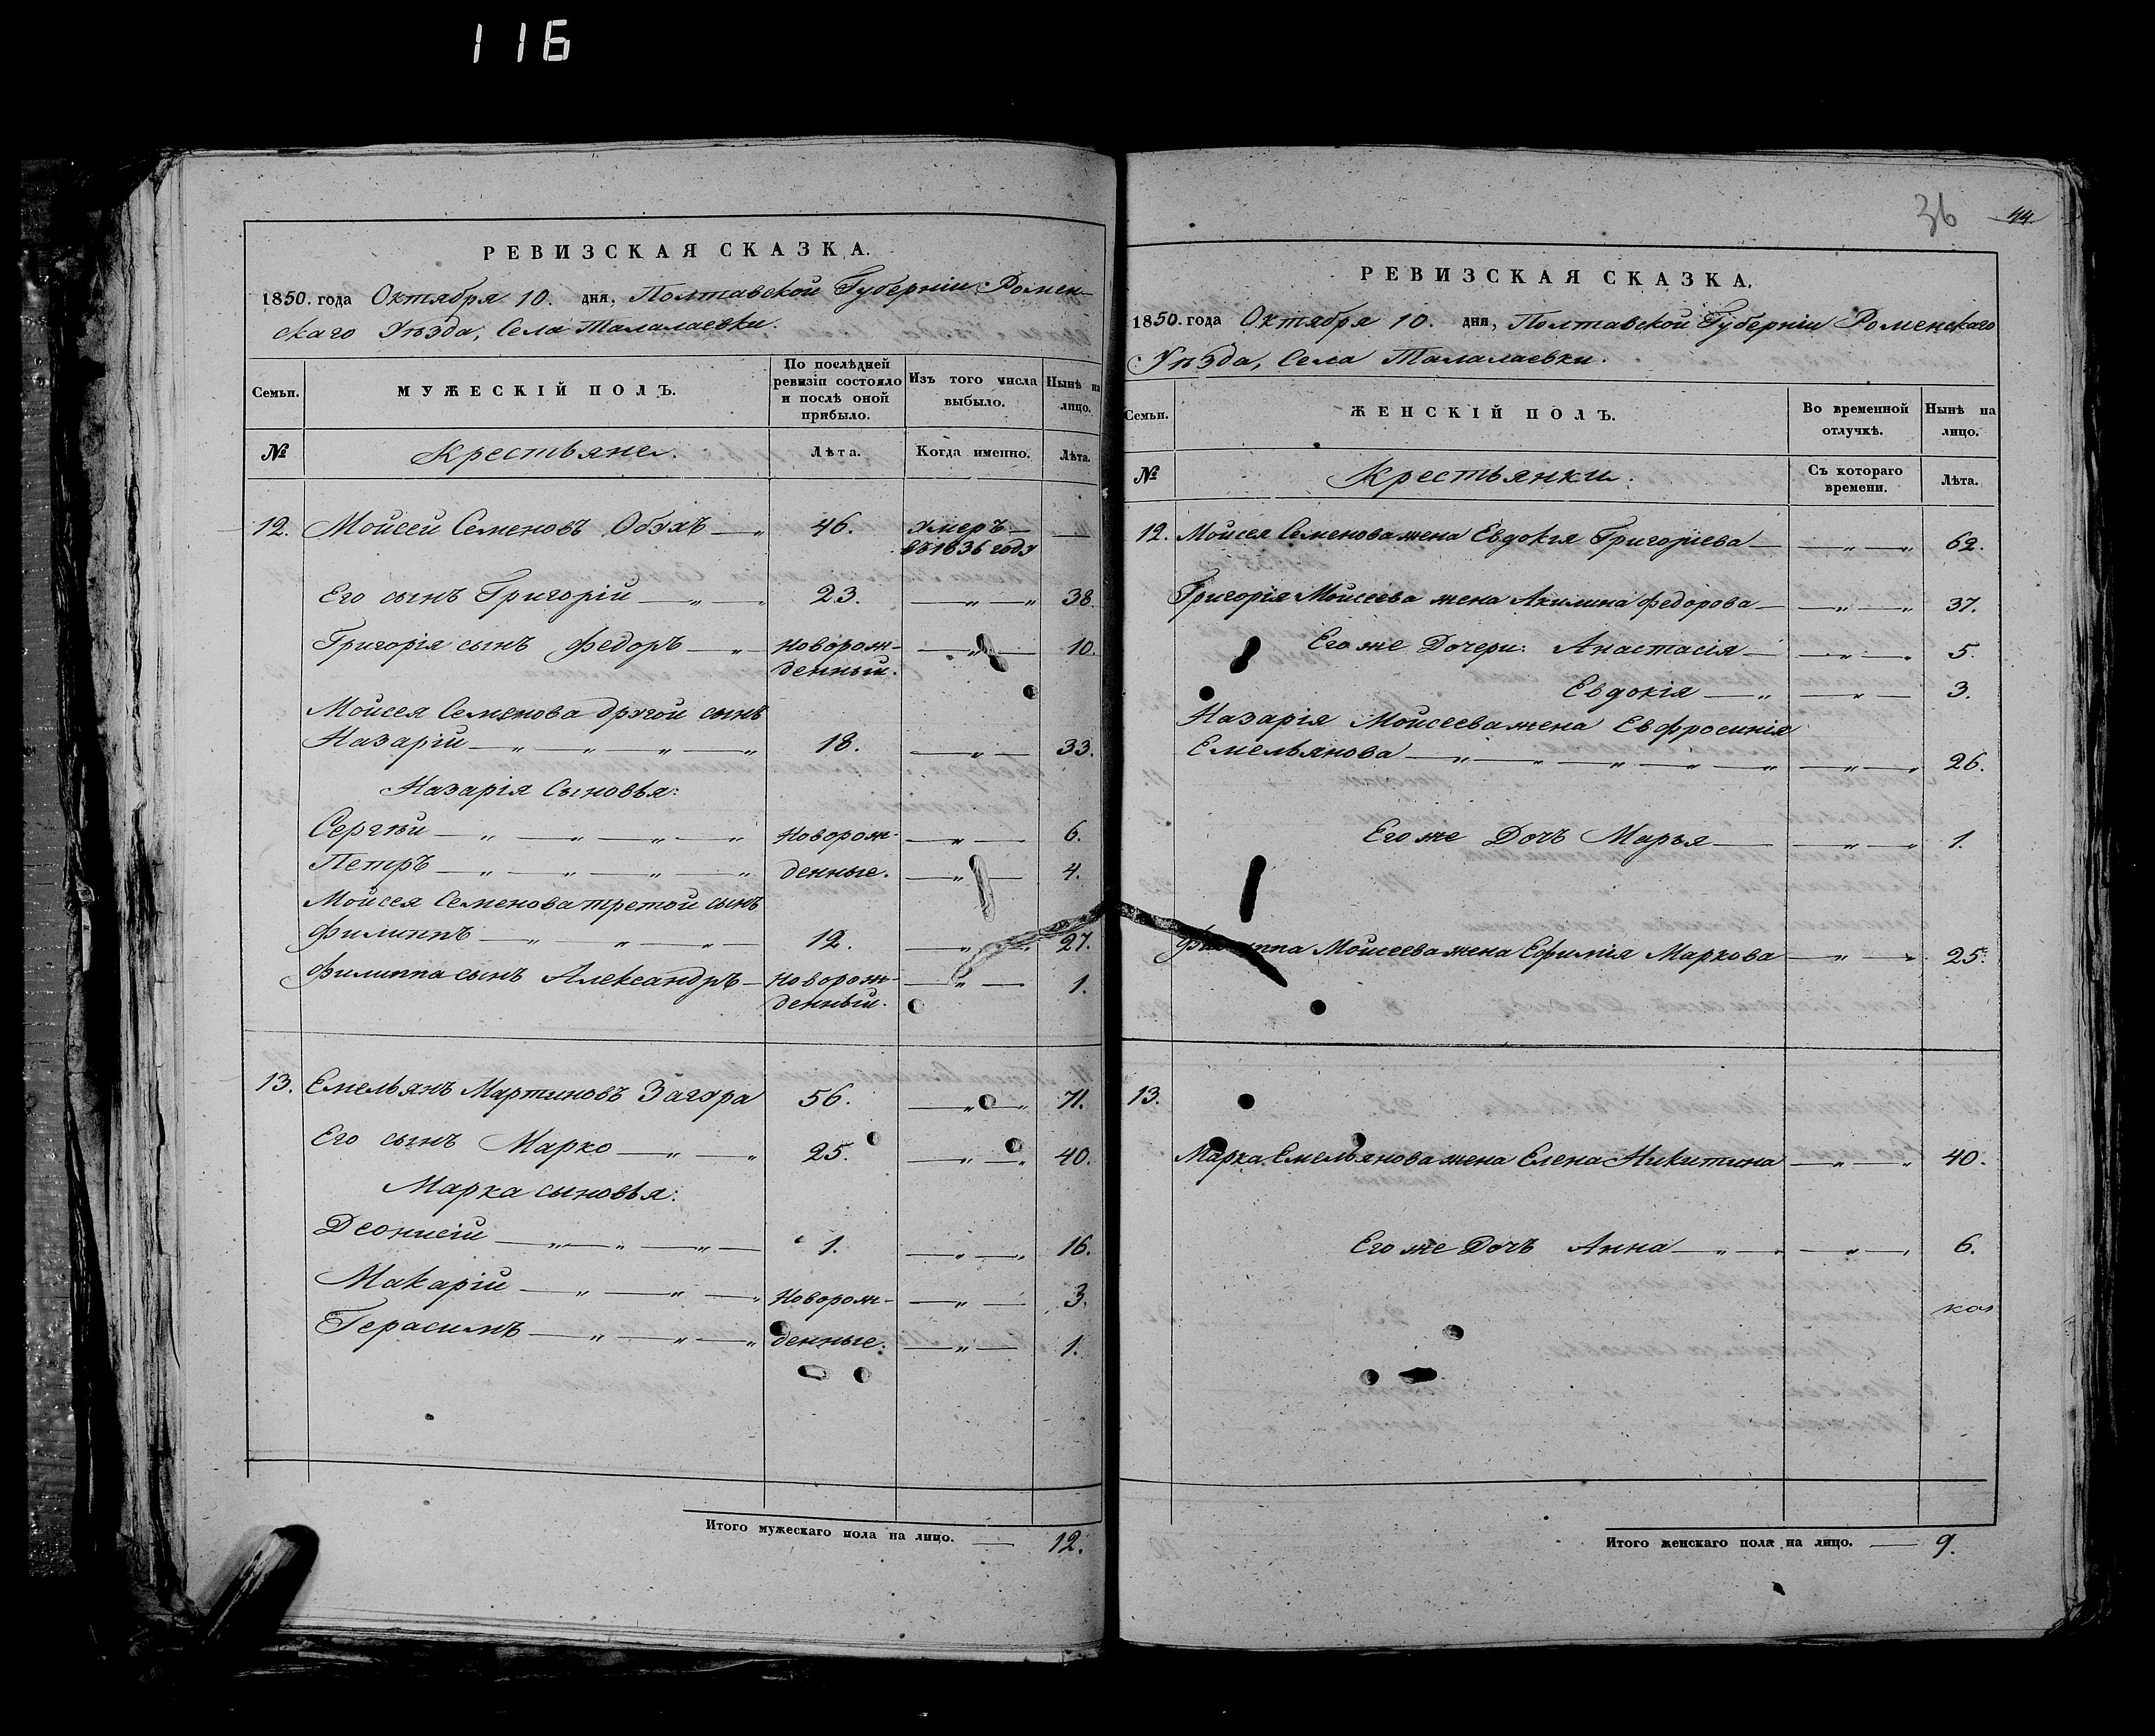 116
РЕВИЗСКАЯ СКАЗКА.
1850. года Октября 10. дня, Полтавской Губерніи Ромен-
скаго Уѣзда, Села Талалаевки.
Семьи. МУЖЕСКІЙ ПОЛЪ. По послѣдней ревизіи состояло и послѣ оной прибыло. Изъ того числа выбыло. Нынѣ на лицо.
№ Крестьяне. Лѣта. Когда именно. Лѣта.
12. Мойсей Семеновъ Обухъ — " 46. умеръ —
въ 1836 году
Его сынъ Григорій — " — " 23. — " — " 38.
Григорія сынъ Федоръ — " Новорож- — " — 10.
денный.
Мойсея Семенова другой сынъ
Назарій — " — " — " — " 18. — " — 33.
Назарія Сыновья:
Сергѣй — " — " — " — " Новорож- — " — 6.
Петръ — " — " — " — " денные. — " — 4.
Мойсея Семенова третой сынъ
Филиппъ — " — " — " — 12. — " — " 27.
Филиппа сынъ Александръ — Новорож- — " — 1.
денный.
13. Емельянъ Мартиновъ Загура 56. — " — " 71.
Его сынъ Марко — " — " 25. — " — " 40.
Марка сыновья:
Деонисій — " — " — " — 1. — " — " 16.
Макарій — " — " — " Новорож- — " — 3.
Герасимъ — " — " — " денные. — " — 1.
Итого мужескаго пола на лицо. — 12.
36 44
РЕВИЗСКАЯ СКАЗКА.
1850. года Октября 10. дня, Полтавской Губерніи Роменскаго
Уѣзда, Села Талалаевки.
Семьи. ЖЕНСКІЙ ПОЛЪ. Во временной отлучкѣ. Нынѣ на лицо.
№ Крестьянки. Съ котораго времени. Лѣта.
12. Мойсея Семенова жена Евдокія Григоріева — — " — " 62.
Григорія Мойсеева жена Акилина Федорова — — " — " 37.
Его же Дочери: Анастасія — — " — " 5.
Евдокія — " — " — 3.
Назарія Мойсеева жена Евфросинія
Емельянова — " — " — " — " — " — " — " 26.
Его же Дочь Марья — — " — " 1.
Филиппа Мойсеева жена Ефимія Маркова — " — " 25.
13.
Марка Емельянова жена Елена Никитина — " — " 40.
Его же Дочь Анна — " — " — " — " 6.
Итого женскаго пола на лицо. — 9.